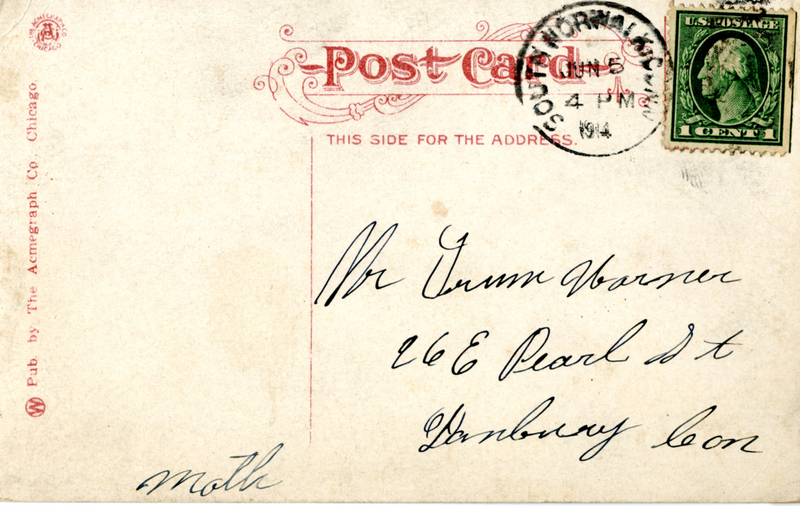 THE ACMEGRAPH CO.
CHICAGO
Post Card
THIS SIDE FOR THE ADDRESS.
SOUTH NORWALK, CONN.
JUN 5
4 PM
1914
U.S. POSTAGE
1 CENT 1
Pub. by The Acmegraph Co. Chicago.
W
Mr Trum Warner
26 E Pearl St
Danbury Con
Moth